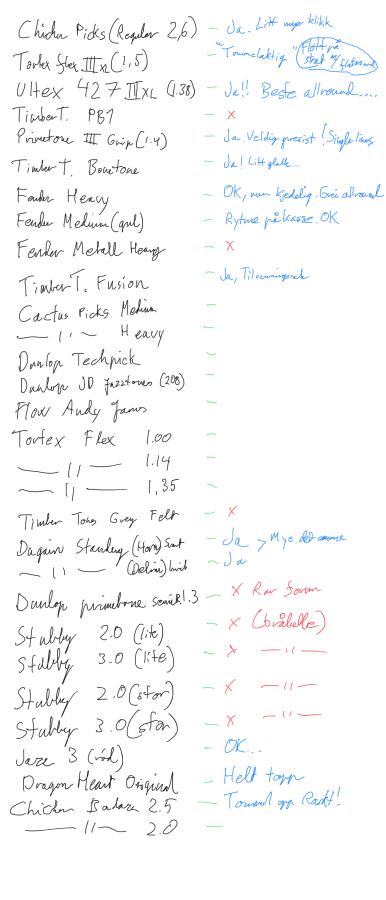 Chicken Picks (Regular 2,6) - Ja. Litt mye klikk
Tortex flex III XL (1,5) - "Tommelaktig" Flott på strat m/
Ultex 427 III XL (1.38) - Ja!! Beste allround....
Timber T. PB1 - x
Primetone III Grip (1.4) - Ja. Veldig presist! Single lines
Timber T. Bonetone - Ja! Litt glatt...
Fender Heavy - OK, men kjedelig. Grei allround
Fender Medium (gml) - Rytme på kasse. OK
Fender Metall Heavy - x
Timber T. Fusion - Ja,
Cactus Picks Medium -
— 11 — Heavy -
Dunlop Techpick -
Dunlop JD Jazztones (208) -
Flow Andy James
Tortex Flex 1.00 -
— 11 — 1.14 -
— 11 — 1,35 -
Timber Tones Grey Felt - x
Dugain Standing (Horn) Svart - Ja > Mye det samme
— 11 — (Delrin) hvit - Ja
Dunlop primetone 1.3 - x Rar form
Stubby 2.0 (lite) - x (bråkelle)
Stubby 3.0 (lite) - x — 11 —
Stubby 2.0 (stor) - x — 11 —
Stubby 3.0 (stor) - x — 11 —
Jazz 3 (rød) - OK...
Dragon Heart Original - Helt topp
Chicken 2.5 - Tommel opp. Raskt!
— 11 — 2.0 -